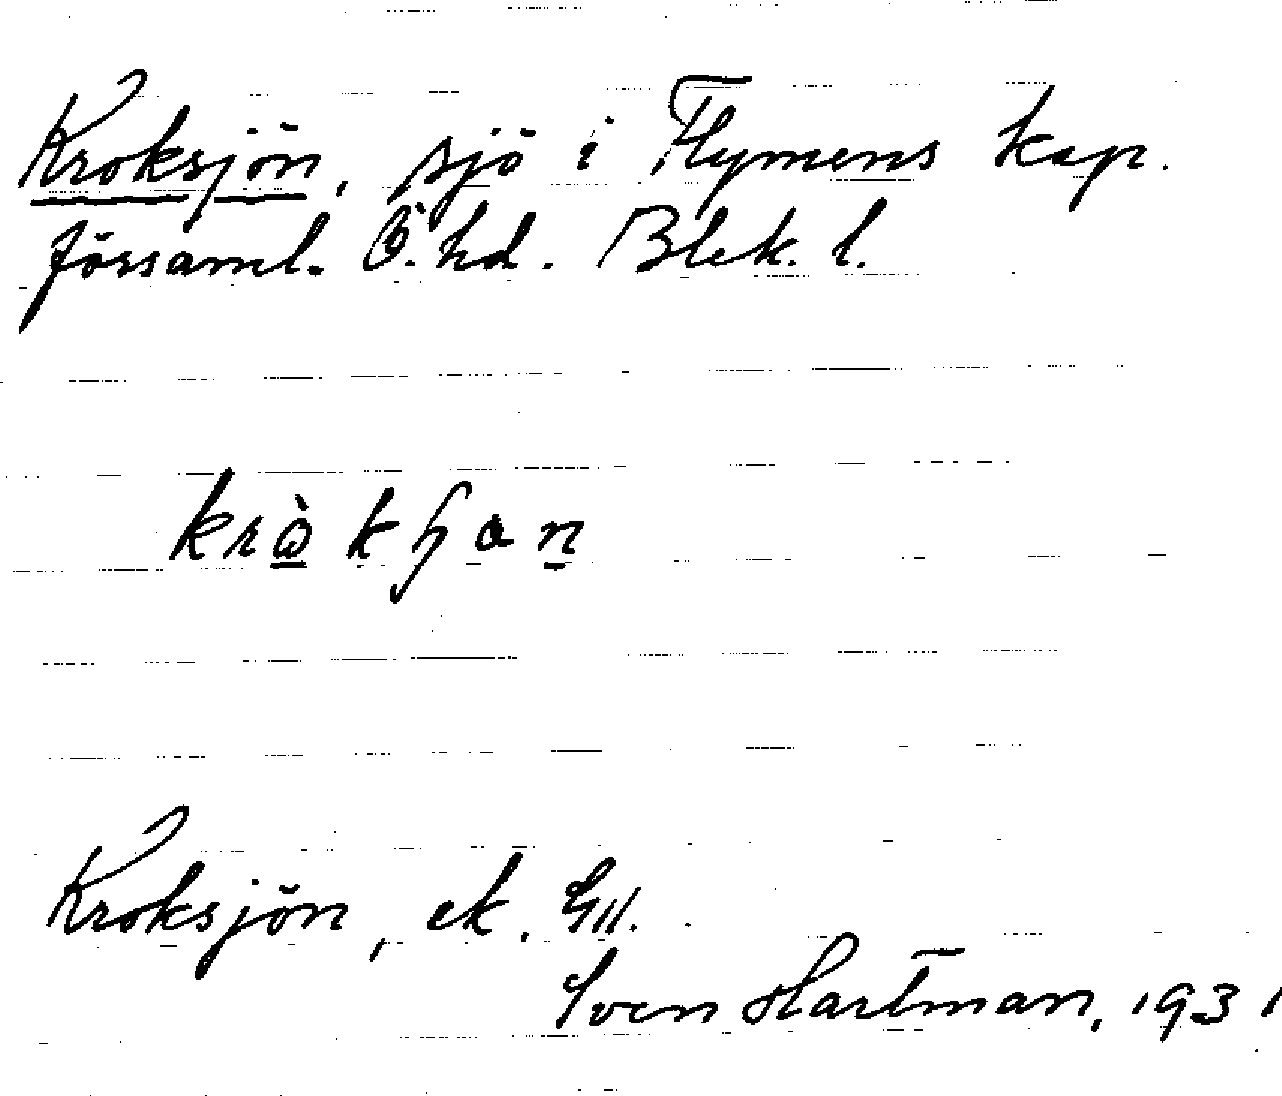 Kroksjön, sjö i Flymens kap.
församl. Ö. hd. Blek. l.
Kroksjön, ek.
Sven Hartman, 1931